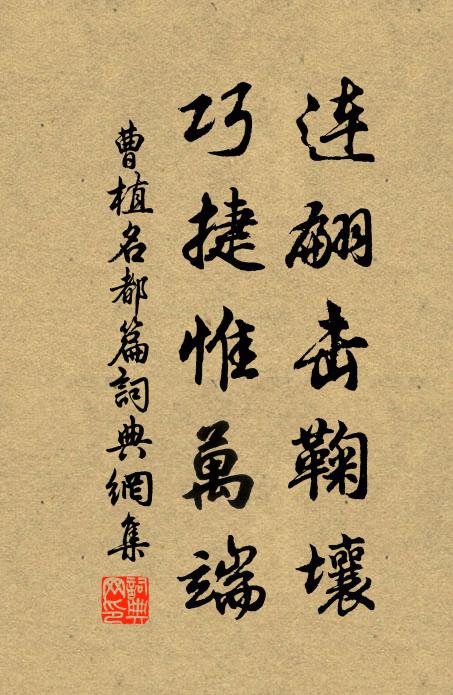 连翩击鞠壤
巧捷惟萬端
曹植名都篇詞典網集
詞典網印